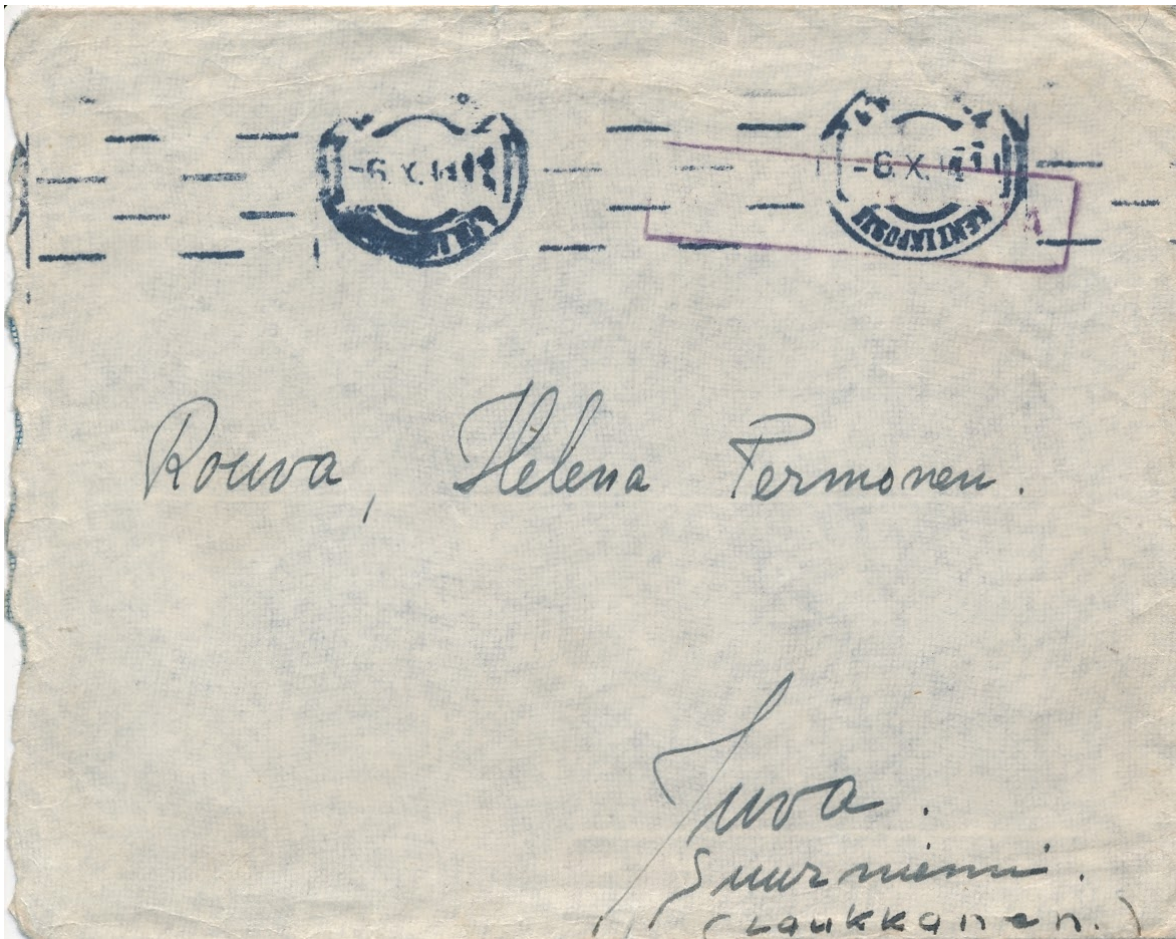 -6.X.
-6.X.
KENTTÄPOSTI
Rouva, Helena Permonen.
Juva.
Suurniemi.
(Laukkanen.)